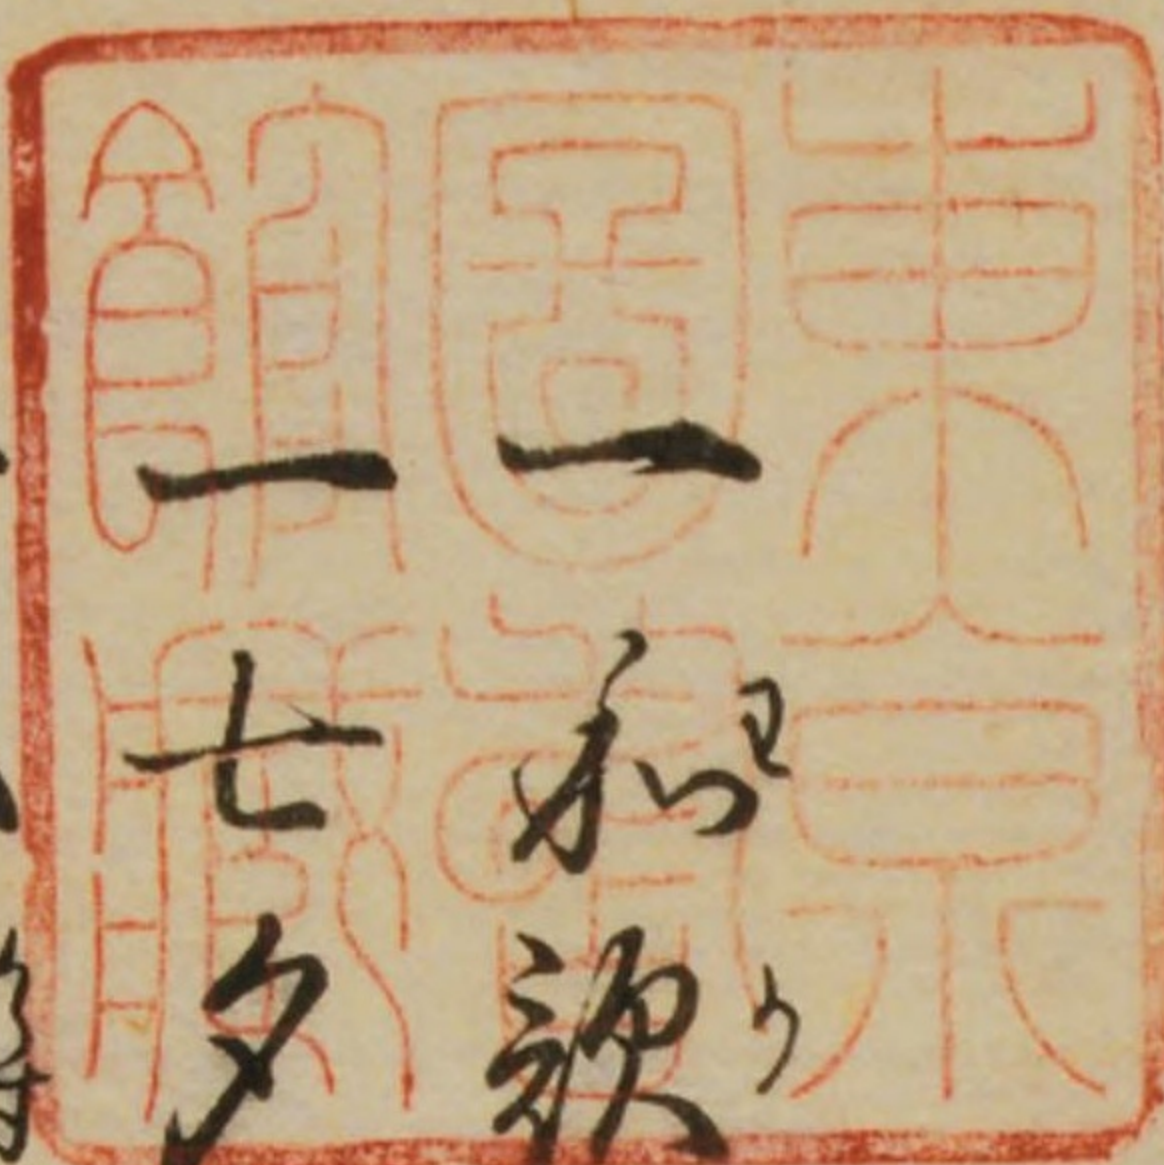 東京
圖書
館藏
一和歌
一七夕